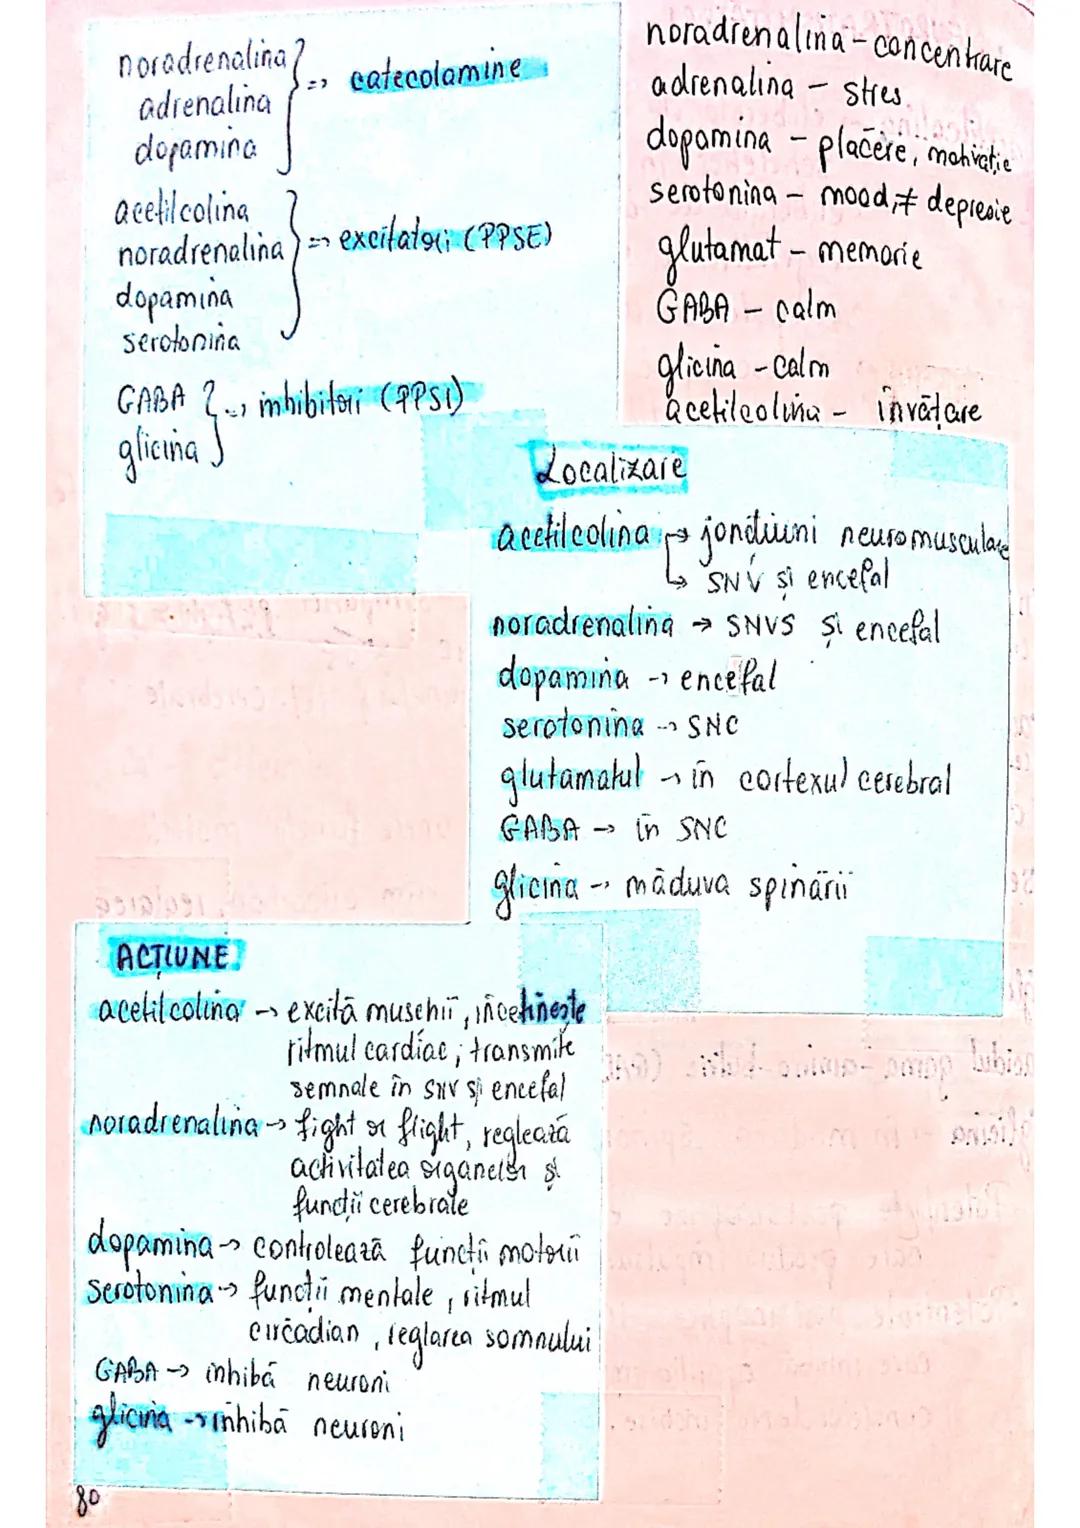 noradrenalina
adrenalina => catecolamine
dopamina
acetilcolina
noradrenalina => excitatori (PPSE)
dopamina
serotonina
GABA => inhibitori (PPSI)
glicina
noradrenalina - concentrare
adrenalina - stres
dopamina - plăcere, motivație
serotonina - mood, ≠ depresie
glutamat - memorie
GABA - calm
glicina - calm
acetilcolina - învățare
Localizare
acetilcolina → joncțiuni neuromusculare
↳ SNV și encefal
noradrenalina → SNVS și encefal
dopamina → encefal
serotonina → SNC
glutamatul → în cortexul cerebral
GABA → în SNC
glicina → măduva spinării
ACȚIUNE
acetilcolina → excită mușchii, încetinește
ritmul cardiac, transmite
semnale în SNV și encefal
noradrenalina → fight or flight, reglează
activitatea organelor și
funcții cerebrale
dopamina → controlează funcții motorii
Serotonina → funcții mentale, ritmul
circadian, reglarea somnului
GABA → inhibă neuroni
glicina → inhibă neuroni
80